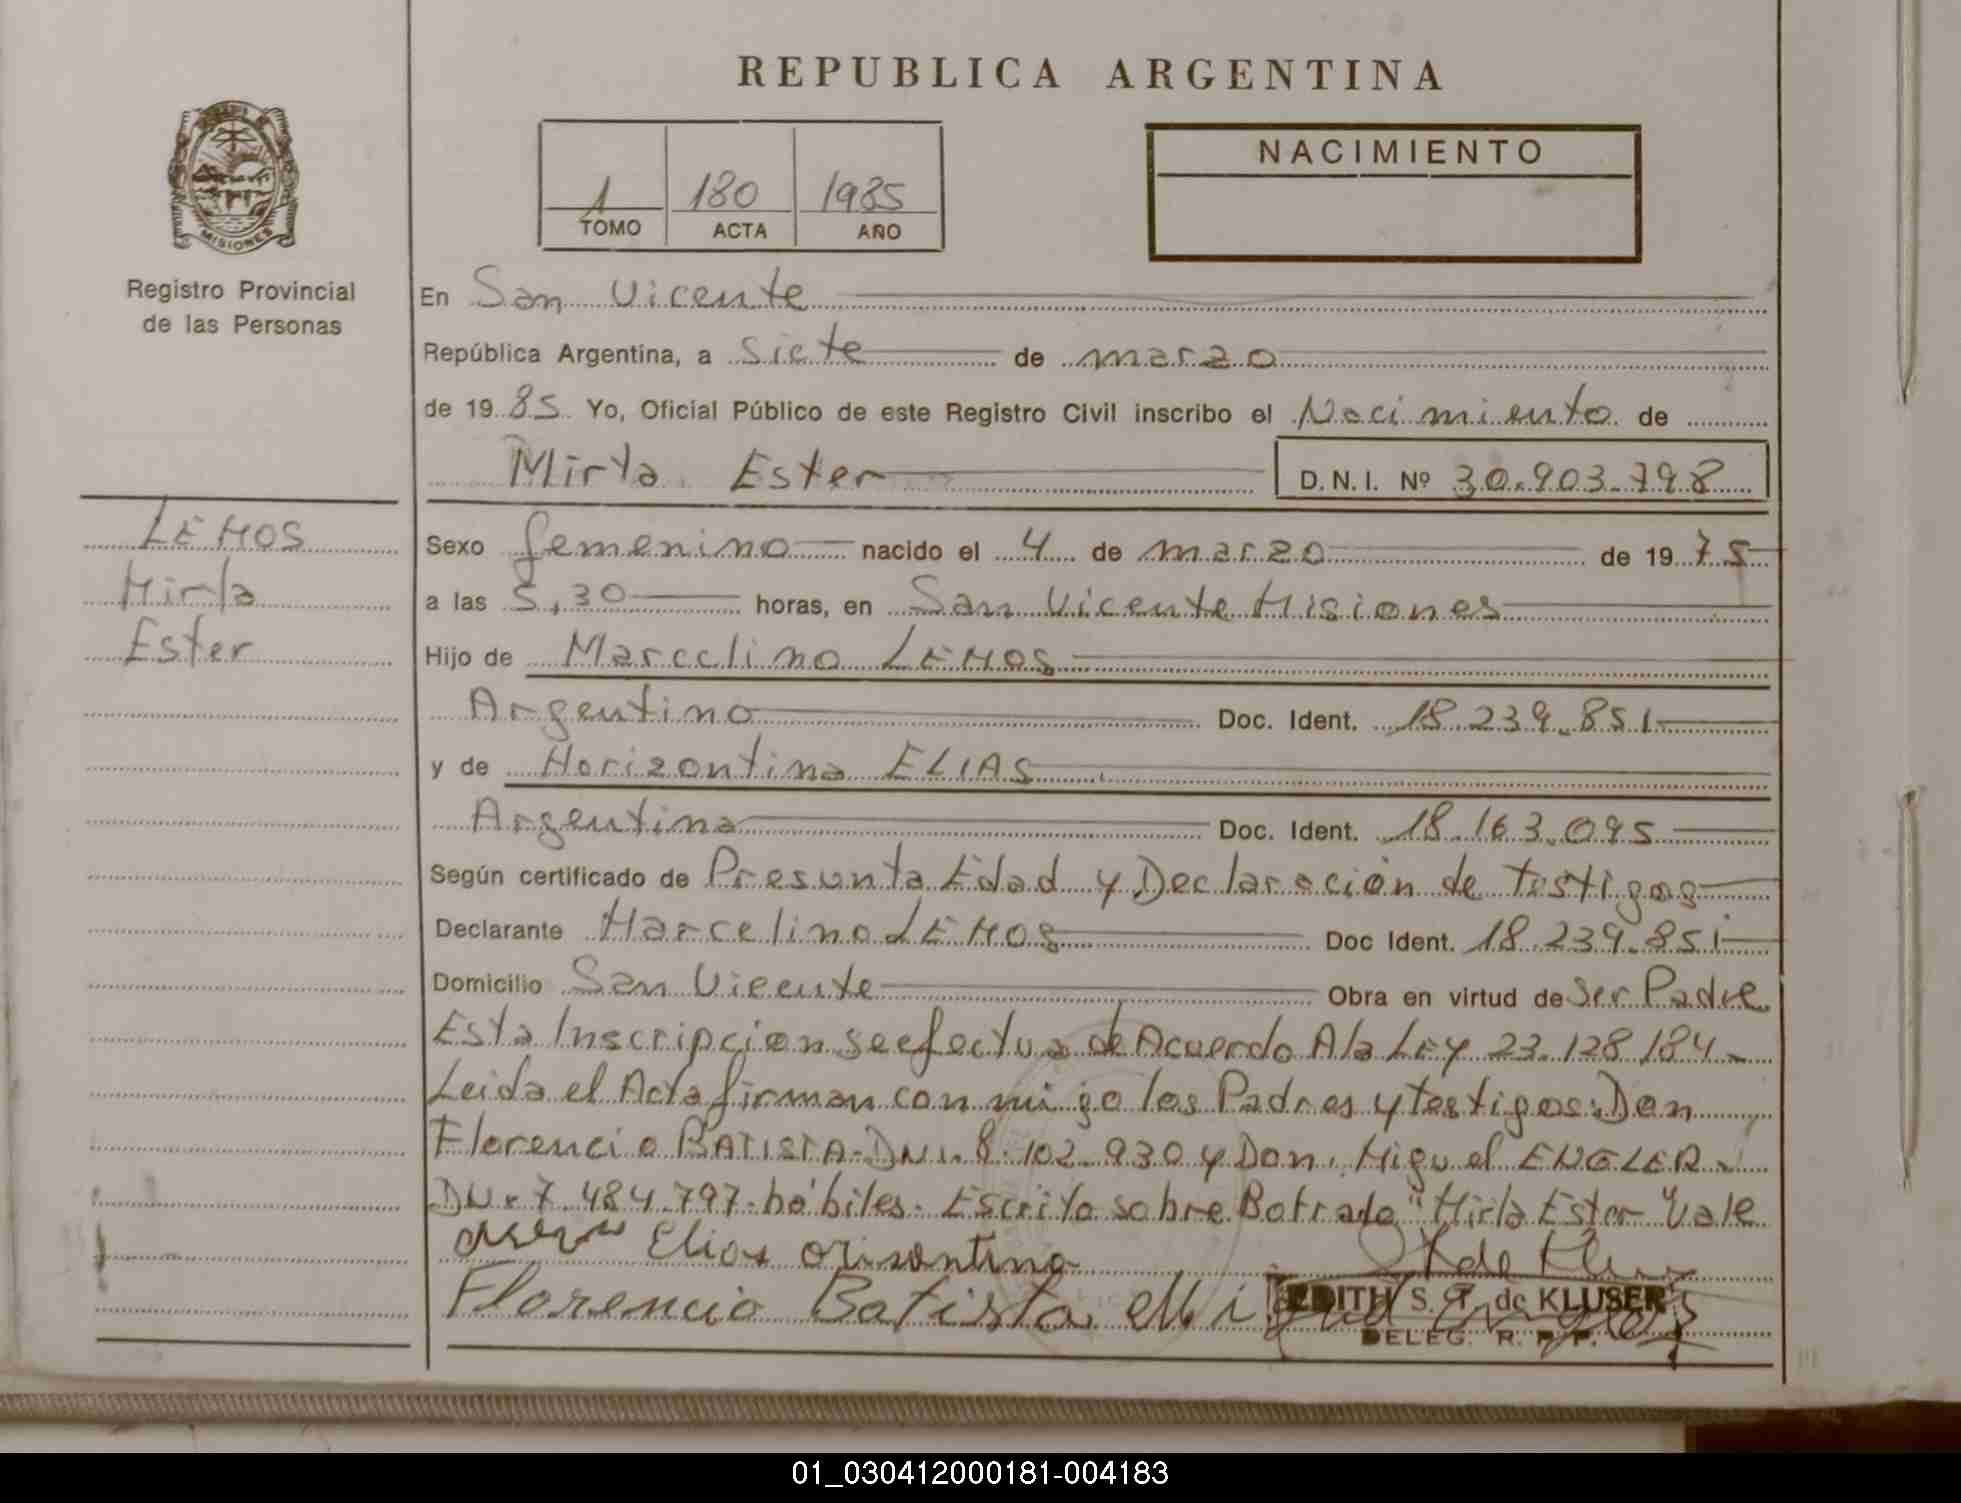 REPUBLICA ARGENTINA
MISIONES
Registro Provincial
de las Personas
1 180 1985
TOMO ACTA AÑO
NACIMIENTO
En San Vicente
República Argentina, a siete de marzo
de 1985 Yo, Oficial Público de este Registro Civil inscribo el Nacimiento de
Mirta Ester D.N.I. Nº 30.903.798
LEMOS
Mirta
Ester
Sexo femenino nacido el 4 de marzo de 1975
a las 5,30 horas, en San Vicente Misiones
Hijo de Marcelino LEMOS
Argentino Doc. Ident. 18.239.851
y de Horizontina ELIAS
Argentina Doc. Ident. 18.163.095
Según certificado de Presunta Edad y Declaración de testigos
Declarante Marcelino LEMOS Doc Ident. 18.239.851
Domicilio San Vicente Obra en virtud de Ser Padre
Esta Inscripcion se efectua de Acuerdo A la LEY 23.128/84
Leida el Acta firman con migo los Padres y testigos: Don
Florencio BATISTA-DNI. 8.102.930 y Don. Miguel ENGLER
DNI. 7.484.797-hábiles. Escrito sobre Borrado "Mirta Ester" Vale
Elias orisontina
Florencio Batista Miguel
EDITH S. T. de KLUSER
DELEG. R. P. P.
01_030412000181-004183